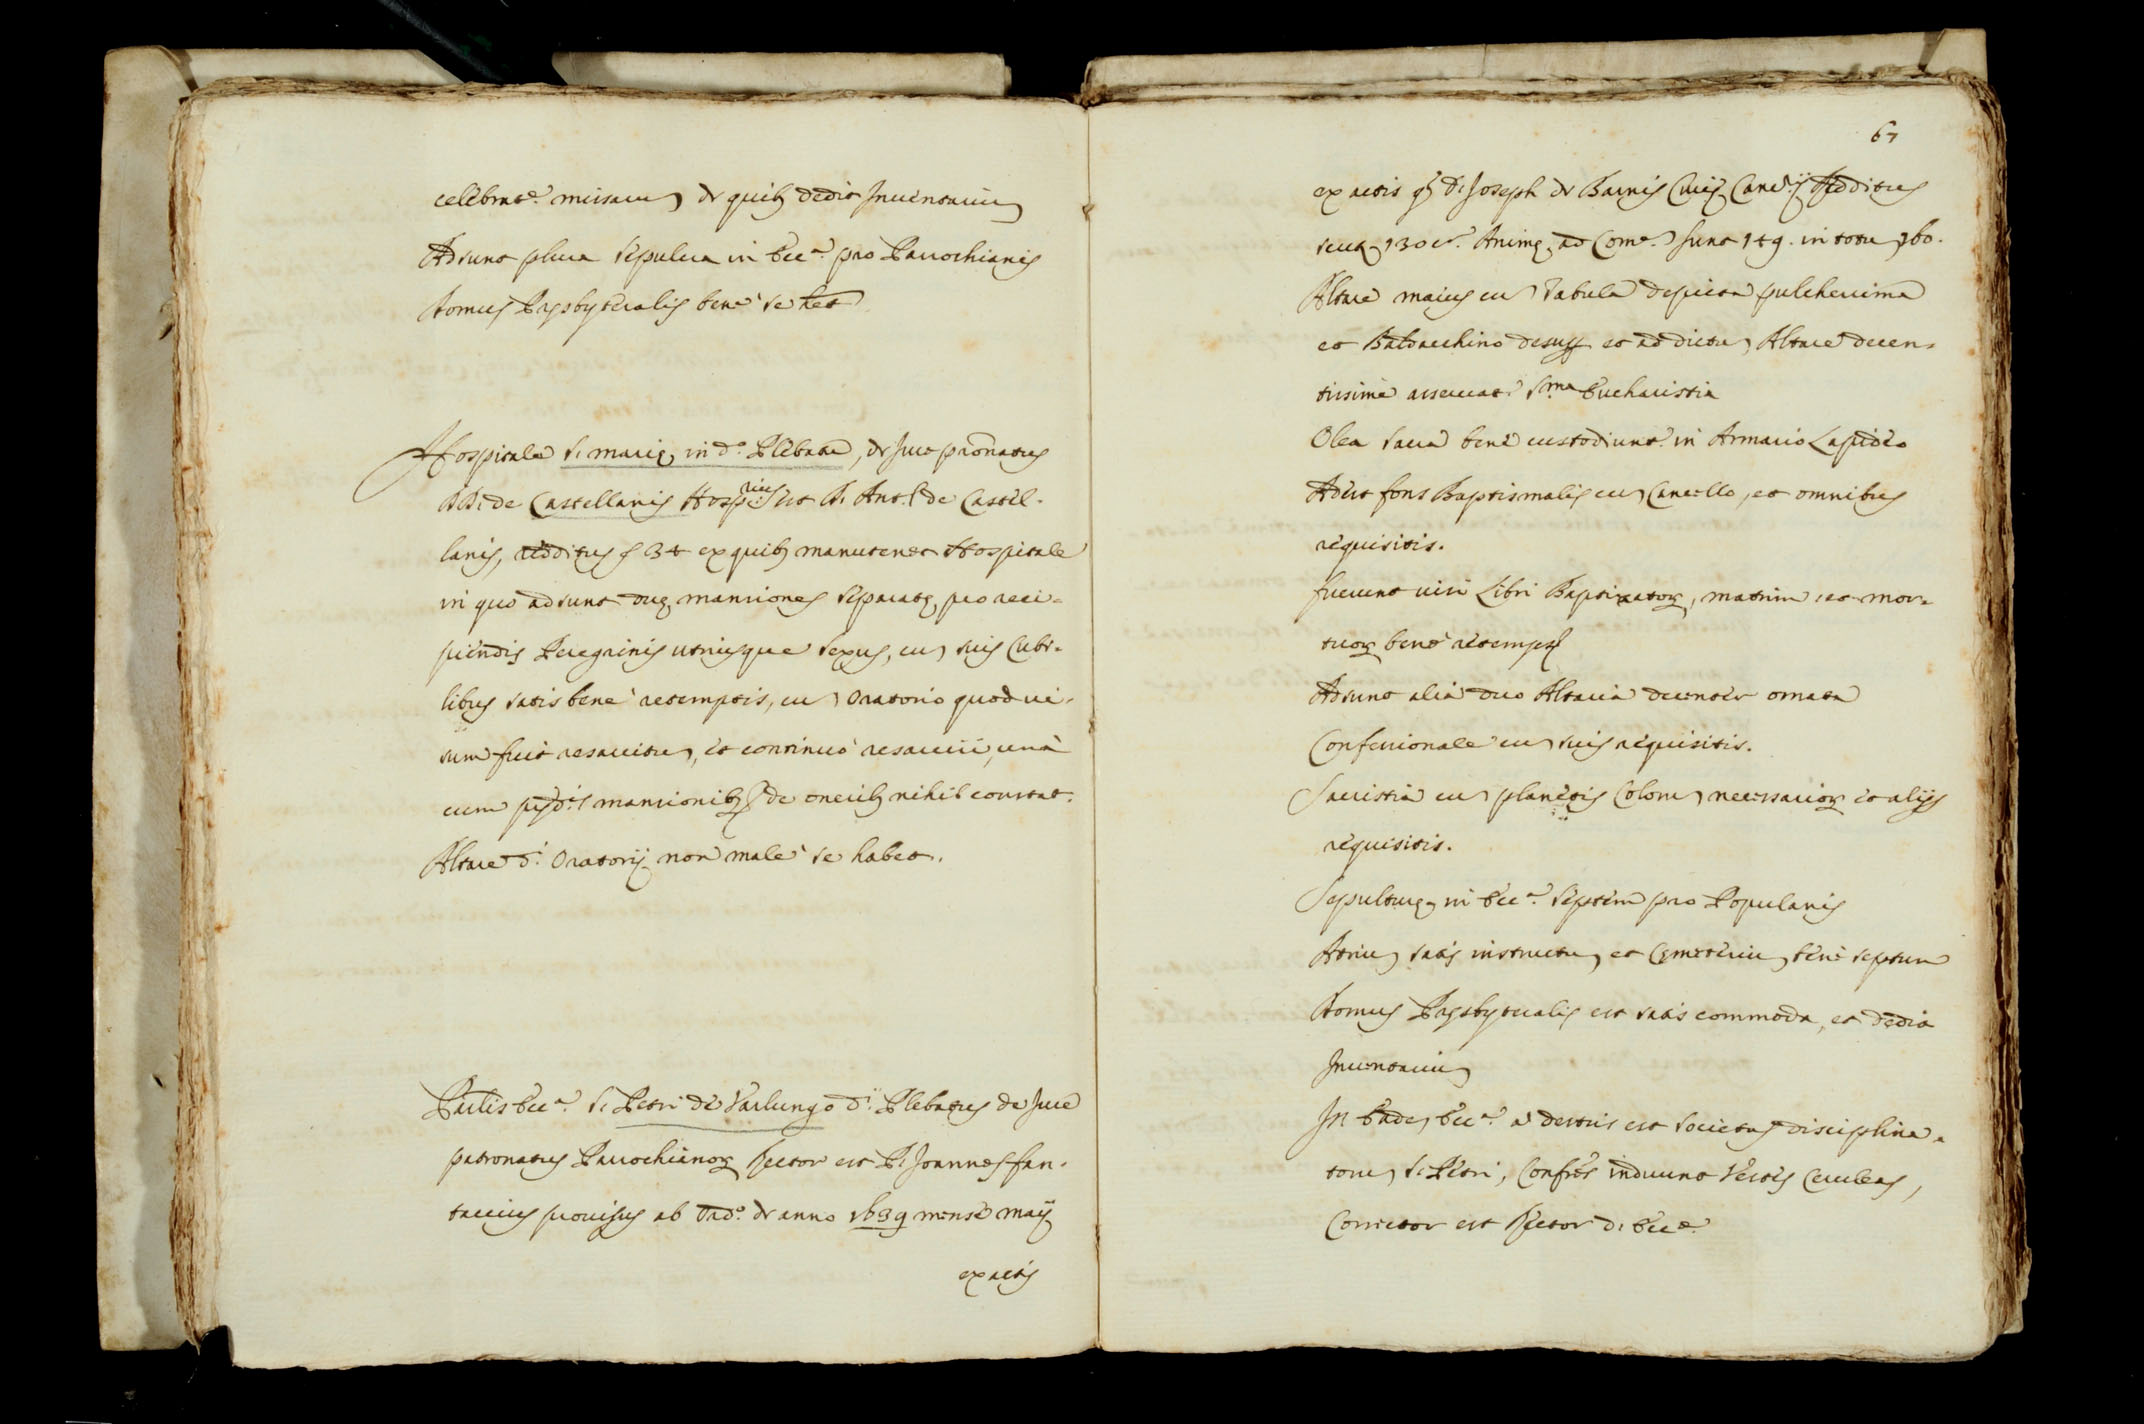 celebrat.e missam de quib9 dedit Inventarium
Adsunt plura sepulcra in Ecc.a pro Parrochianis
Domus Presbyteralis bene se het
Hospitale S. Marię in d.o Plebatu, de Jure pronatus
DD. de Castellanis Hosprius est D. Ant. de Castel-
lanis, redditus f 34 ex quib9 manutenet Hospitale
in quo adsunt duę mansiones separatę pro reci-
piendis Peregrinis utriusque sexus, cu suis Cubi-
libus satis bene retemptis, cu oratorio quod vi-
sum fuit resarcitu, et continuo resarciri, una
cum pred.is mansionib9 de onerib9 nihil constat.
Altare d.i Oratorij non male se habet.
Parlis Ecc.a S. Petri de Varlungo d.i Plebatus de Jure
patronatus Parrochianor Rector est P. Joannes fan-
taccius provisus ab Ord.o de anno 1639 mense maij
ex actis
67
ex actis D. Joseph de Barnis Civis Redditus
scut 130 c.a Animę ad Com.e sunt 149. in totu 260.
Altare maius cu Tabula depicta pulcherrima
et Baldacchino desup et ad dictu Altare decen-
tissime asservat. S.ma Eucharistia
Olea sacra bene custodiunt. in Armario Lapideo
Adest fons Baptismalis cu Cancello, et omnibus
requisitis.
fuerunt visi Libri Baptizator, matrim. et mor-
tuor bene retempti
Adsunt alia duo Altaria decenter ornata
Confessionale cu suis requisitis.
Sacristia cu planetis Coloru necessarior et alijs
requisitis.
Sepulturę in Ecc.a septem pro Popularis
Atriu satis instructu et Cęmeteriu bene septum
Domus Presbyteralis est satis commoda, et dedit
Inventariu
In Eade Ecc.a a dextris est Societas disciplina-
toru S. Petri, Confres induunt Vestes Ceruleas,
Corrector est Rector d. Ecc.e